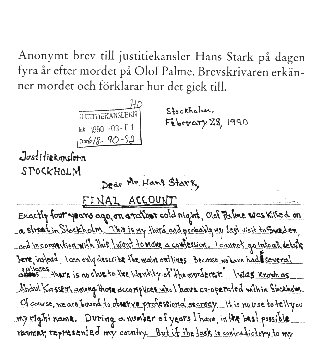 Anonymt brev till justitiekansler Hans Stark på dagen
fyra år efter mordet på Olof Palme. Brevskrivaren erkän-
ner mordet och förklarar hur det gick till.
JUSTITIEKANSLERN
Ink 1990 -03- 01
Stockholm,
February 28, 1990
Justitiekanslern
STOCKHOLM
Dear Mr. Hans Stark,
FINAL ACCOUNT
Exactly four years ago, on a cold night, Olof Palme was killed on
a street in Stockholm. This is my third and probably my last visit to Sweden
and in connection with this I want to make a confession. I cannot go into all details
here, instead, I can only describe the main outlines. Because we have had several
there is no clue to the identity of "the murderer". I was known as
Kassem among those accomplices who I have co-operated within Stockholm.
Of course, we are bound to observe professional secrecy. It is no use to tell you
my right name. During a number of years I have, in the best possible
manner, represented my country. But if the task is contradictory to my